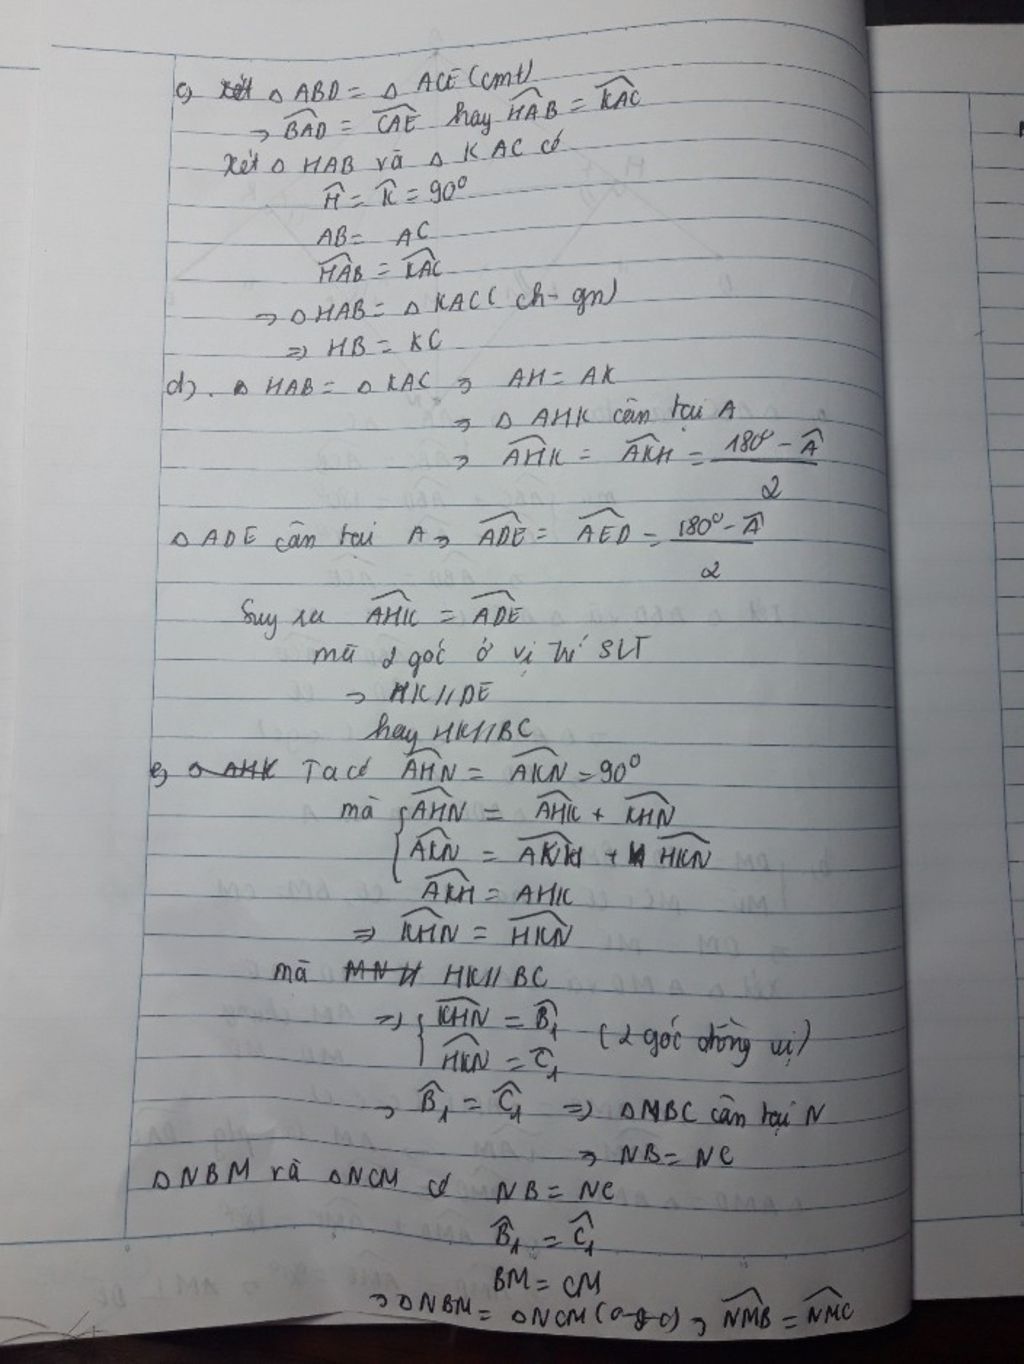 c) Xét △ ABD = △ ACE (cmt)
⇒ BAD̂ = CAÊ hay HAB̂ = KAĈ
Xét △ HAB và △ KAC có
Ĥ = K̂ = 90°
AB = AC
HAB̂ = KAĈ
⇒ △ HAB = △ KAC ( ch - gn)
⇒ HB = KC
d). △ HAB = △ KAC ⇒ AH = AK
⇒ △ AHK cân tại A
⇒ AHK̂ = AKĤ = (180° - Â)/2
△ ADE cân tại A ⇒ ADÊ = AED̂ = (180° - Â)/2
Suy ra AHK̂ = ADÊ
mà 2 góc ở vị trí SLT
⇒ HK // DE
hay HK // BC
e) △ AHK Ta có AHN̂ = AKN̂ = 90°
mà { AHN̂ = AHK̂ + KHN̂
AKN̂ = AKĤ + HKN̂
AKĤ = AHK
⇒ KHN̂ = HKN̂
mà MN // HK // BC
⇒ { KHN̂ = B̂₁ (2 góc đồng vị)
HKN̂ = Ĉ₁
⇒ B̂₁ = Ĉ₁ ⇒ △MBC cân tại N
⇒ NB = NC
△NBM và △NCM có NB = NC
B̂₁ = Ĉ₁
BM = CM
⇒ △NBM = △NCM (c-g-c) ⇒ NMB̂ = NMĈ